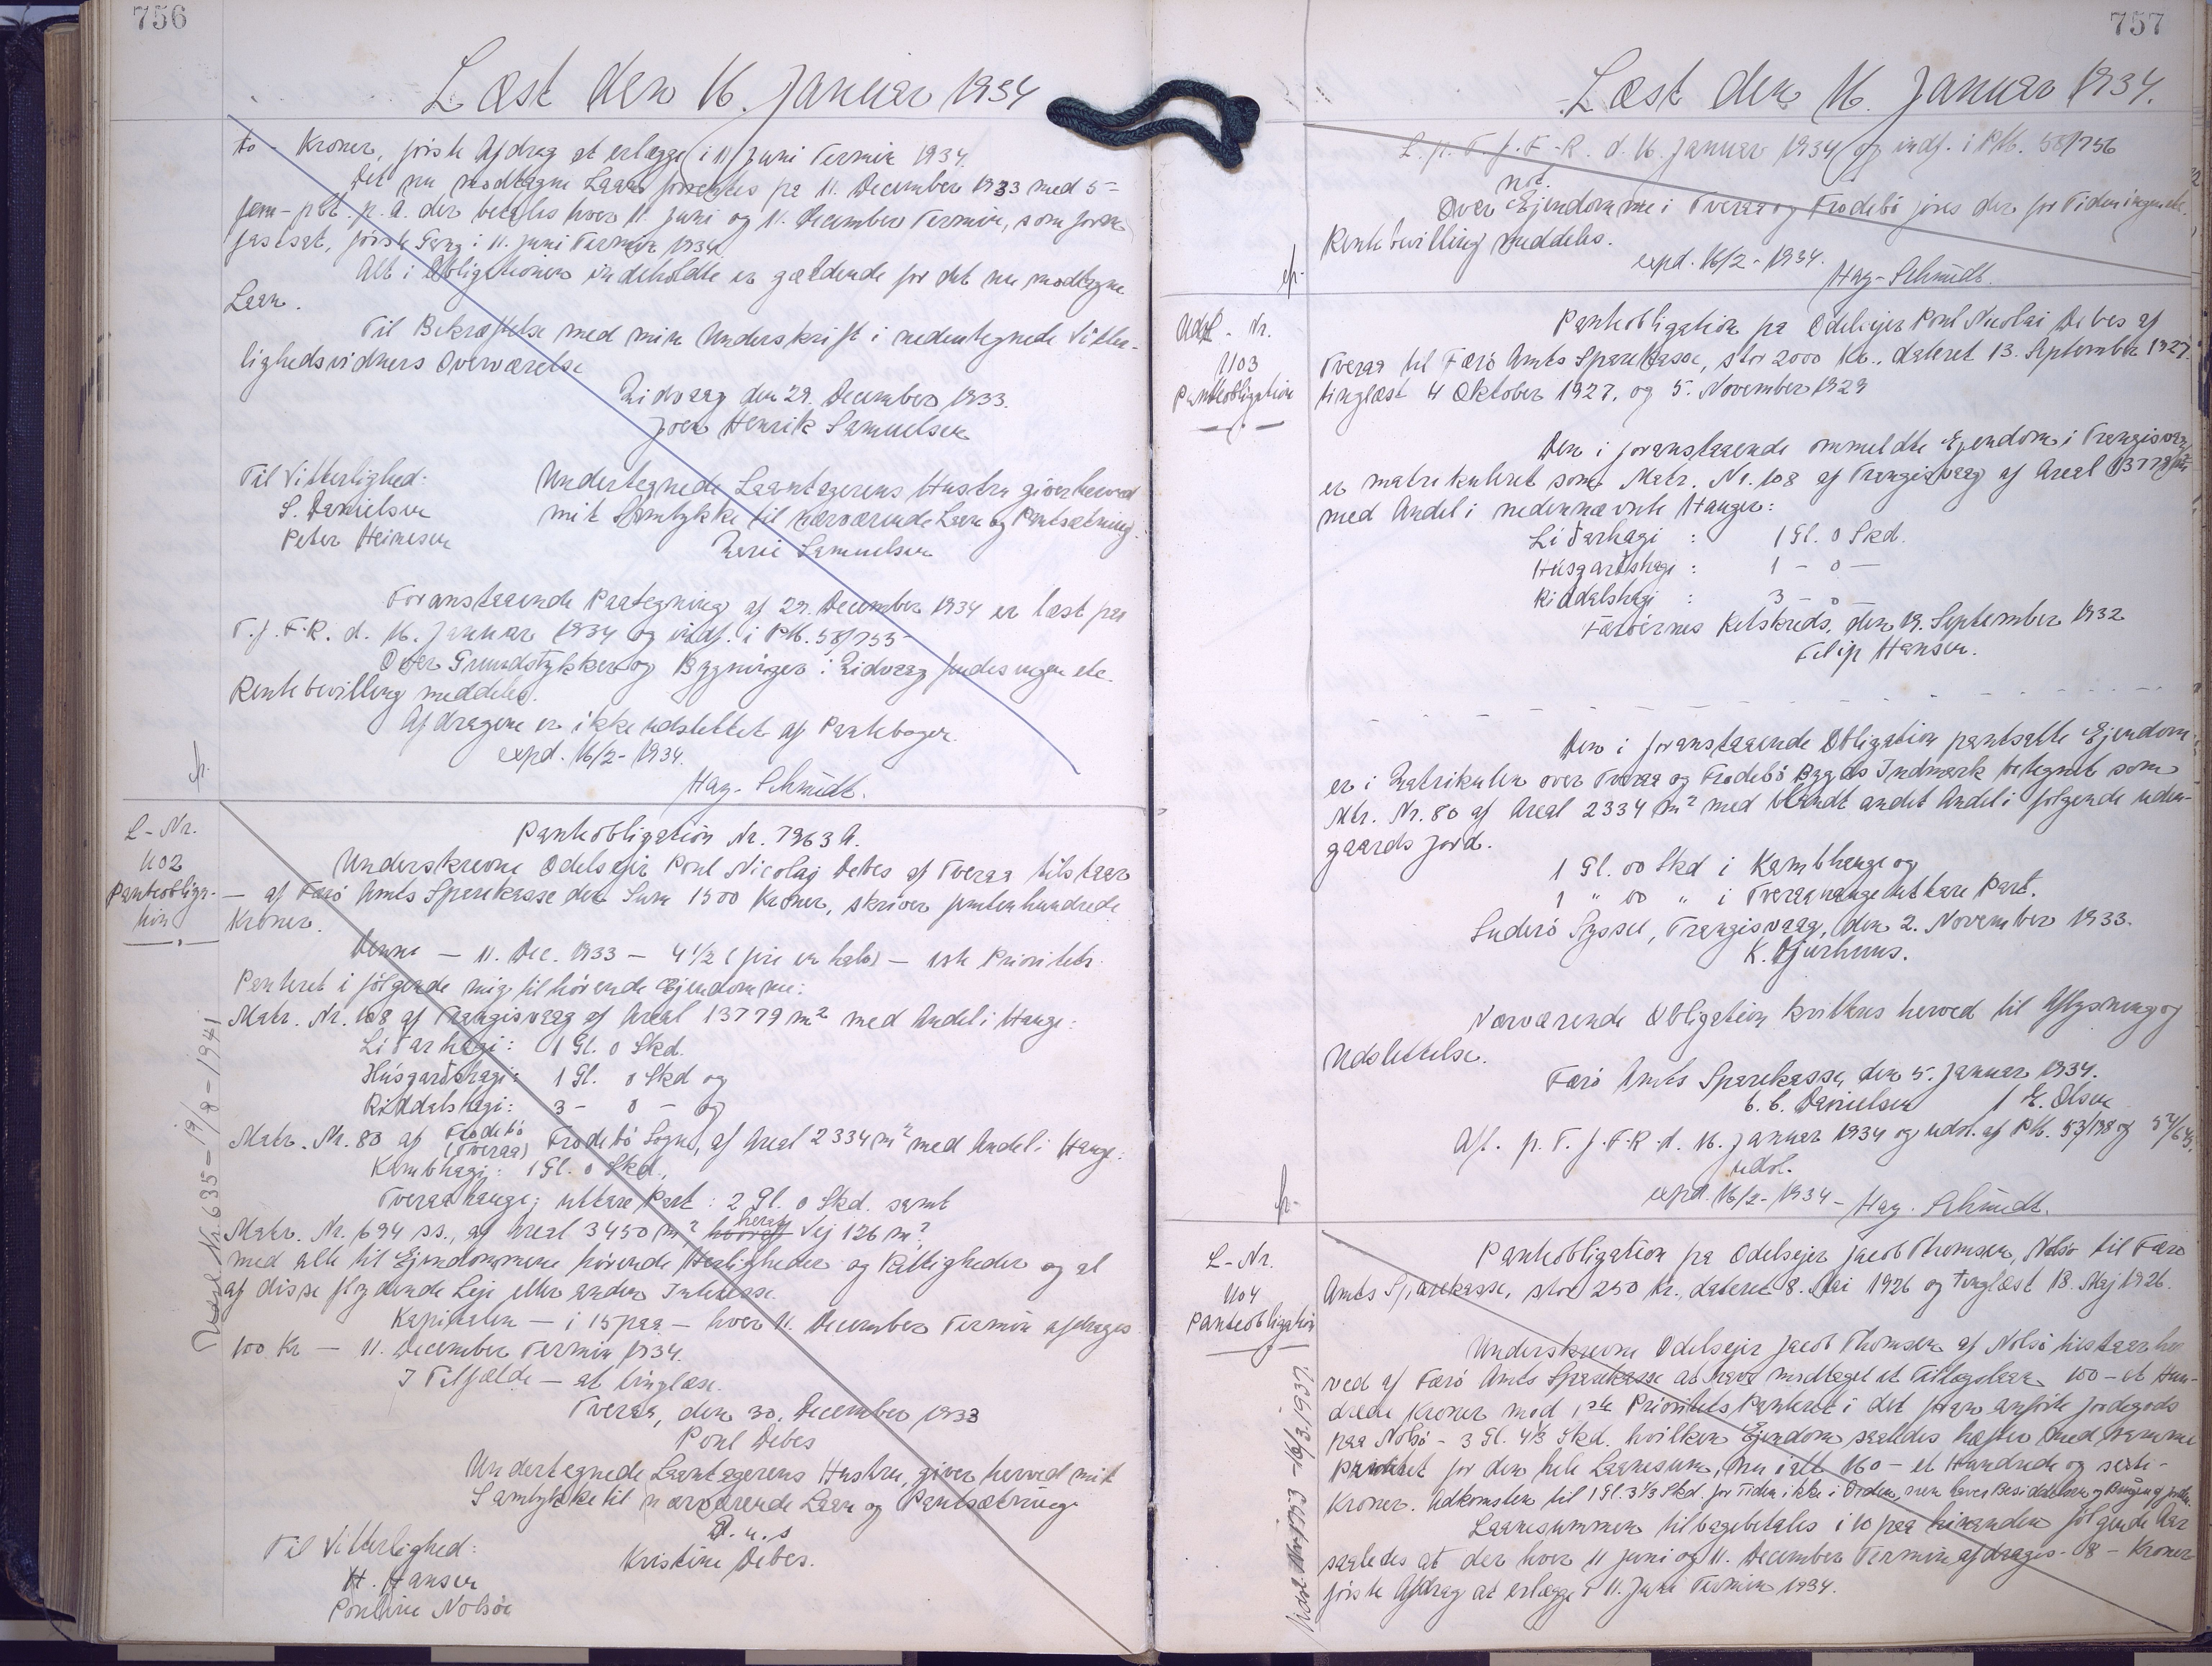 756
Læst den 16. Januar 1934
to - Kroner, første Afdrag at erlægge i 11 Juni Termin 1934.
Det nu modtagne Laan forrentes fra 11. December 1933 med 5 =
fem - pCt. p. a. der betales hver 11. Juni og 11. December Termin, som foran
fastsat, første Gang i 11. Juni Termin 1934.
Alt i Obligationen indeholdte er gældende for det nu modtagne
Laan.
Til Bekræftelse med min Underskrift i nedentegnede Vitter-
lighedsvidners Overværelse
den 29. December 1933.
Joen Henrik Samuelsen
Til Vitterlighed:
S. Danielsen
Peter Heinesen
Undertegnede Laantagerens Hustru giver herved
mit Samtykke til nærværende Laan og Pantsætning.
Samuelsen
Foranstaaende Paategning af 29. December 1934 er læst paa
T. f. F. R. d. 16. Januar 1934 og indf. i PM. 58/755
Over Grundstykker og Bygninger i findes ingen etc.
Rentebevilling meddeles.
Afdragene er ikke udslettet af Pantebogen.
expd. 16/2 - 1934.
Hay-Schmidt.
L - Nr.
1102
Panteobliga-
tion
Udsl. Nr. 635 - 19/8 - 1941
Panteobligation Nr. 7963 A.
Underskrevne Odelsejer Poul Nicolaj Debes af Tveraa tilstaar
— af Færø Amts Sparekasse den Sum 1500 Kroner, skriver femtenhundrede
Kroner.
Denne — 11. Dec. 1933 — 4 1/2 (fire en halv) — 1ste Prioritets
Panteret i følgende mig tilhørende Ejendomme:
Matr. Nr. 108 af Trangisvaag af Areal 13779 m² med Andel i Hauge:
Liðarhagi: 1 Gl. 0 Skd.
Húsgarðshagi: 1 Gl. 0 Skd og
Riddalshagi: 3 - 0 - og
Matr. Nr. 80 af Frodebø (Tveraa) Frodebø Sogn, af Areal 2334 m² med Andel i Hauge:
Kambhagi: 1 Gl. 0 Skd.,
Tveraahauge, uttare Part: 2 Gl. 0 Skd. samt
Matr. Nr. 694 ss., af Areal 3450 m², heraf Vej 126 m²
med alle til Ejendommene hørende Herligheder og Rettigheder og al
af disse flydende Leje eller anden Interesse.
Kapitalen — i 15 paa — hver 11. December Termin afdrages
100 Kr — 11. December Termin 1934.
I Tilfælde — at tinglæse.
Tveraa, den 30. December 1933
Poul Debes
Undertegnede Laantagerens Hustru, giver herved mit
Samtykke til nærværende Laan og Pantsætning
D. u. s
Kristine Debes.
Til Vitterlighed:
H. Hansen
Pouline Nolsøe
757
Læst den 16. Januar 1934.
L. p. T. f. F. R. d. 16. Januar 1934 og indf. i PM. 58/756
not.
Over Ejendomme i Tveraa og Frodebø føres der for Tiden ingen etc.
Rentebevilling meddeles.
expd. 16/2 - 1934.
Hay-Schmidt.
Udsl - Nr.
1103
Panteobligation
Panteobligation fra Odelsejer Poul Nicolai Debes af
Tveraa til Færø Amts Sparekasse, stor 2000 Kr., dateret 13. September 1927
tinglæst 4 Oktober 1927, og 5. November 1929
Den i foranstaaende ommeldte Ejendom i Trangisvaag
er matrikuleret som Matr. Nr. 108 af Trangisvaag af Areal 13779 m²
med Andel i nedennævnte Hauger:
Liðarhagi : 1 Gl. 0 Skd.
Húsgarðshagi : 1 - 0 —
Riddalshagi : 3 - 0 —
Færøernes Retskreds, den 19. September 1932
Filip Hansen.
Den i foranstaaende Obligation pantsatte Ejendom
er i Matrikulen over Tveraa og Frodebø Bygds Indmark betegnet som
Mtr. Nr. 80 af Areal 2334 m² med blandt andet Andel i følgende uden-
gaards Jord.
1 Gl. 00 Skd i Kambhauge og
1 " 00 " i Tveraahauge uttare Part.
Suderø Syssel, Trangisvaag, den 2. November 1933.
K. Djurhuus.
Nærværende Obligation kvitteres herved til Aflysning og
Udslettelse.
Færø Amts Sparekasse, den 5. Januar 1934.
C. C. Danielsen / E. Olsen
Afl. p. T. f. F. R. d. 16. Januar 1934 og udsl. af PM. 53/198 og 54/645.
udsl.
expd. 16/2 - 1934 - Hay-Schmidt.
L - Nr.
1104
Panteobligation
Panteobligation fra Odelsejer Jacob Thomsen, Nolsø til Færø
Amts Sparekasse, stor 250 Kr., dateret 8. Mai 1926 og tinglæst 18. Maj 1926.
Underskrevne Odelsejer Jacob Thomsen af Nolsø tilstaar her-
ved af Færø Amts Sparekasse at have modtaget et Tillægslaan 100 - et Hun-
drede Kroner mod 1ste Prioritets Panteret i det foran anførte Jordegods
paa Nolsø - 3 Gl. 4 1/3 Skd. hvilken Ejendom saaledes hæfter med samme
Panteret for den hele Laanesum, nu i alt 160 - et Hundrede og seksti -
Kroner. Adkomsten til 1 Gl. 3 1/3 Skd. for Tiden ikke i Orden, men haves Besiddelsen og
Laanesummen tilbagebetales i 10 paa hinanden følgende Aar
saaledes at der hver 11 Juni og 11. December Termin afdrages - 8 - Kroner
første Afdrag at erlægge i 11. Juni Termin 1934.